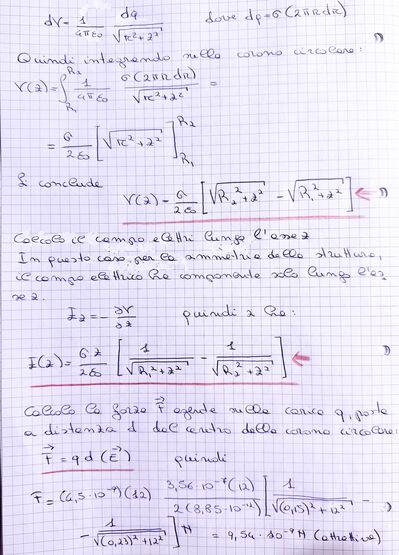 dV = 1/4πε0 dq/√r²+z² dove dq = σ(2πr dr)
Quindi integrando nella corona circolare:
V(z) = ∫R1^R2 1/4πε0 σ(2πr dr)/√r²+z² =
= σ/2ε0 [√r²+z²]R1^R2
Si conclude
V(z) = σ/2ε0 [√R2²+z² - √R1²+z²]
Calcolo il campo elettri lungo l'asse z
In questo caso, per la simmetria della struttura,
il campo elettrico ha componente solo lungo l'as
se z.
Ez = -∂V/∂z quindi si ha:
E(z) = σz/2ε0 [1/√R1²+z² - 1/√R2²+z²]
Calcolo la forza F→ agente sulla carica q, posta
a distanza d dal centro della corona circolare:
F→ = qd (E→) quindi
F = (4,5·10⁻⁹)(12) 3,56·10⁻⁸(12)/2(8,85·10⁻¹²) [1/√(0,15)²+12² -
- 1/√(0,23)²+12²] N = 9,54·10⁻⁹ N (attrattiva)